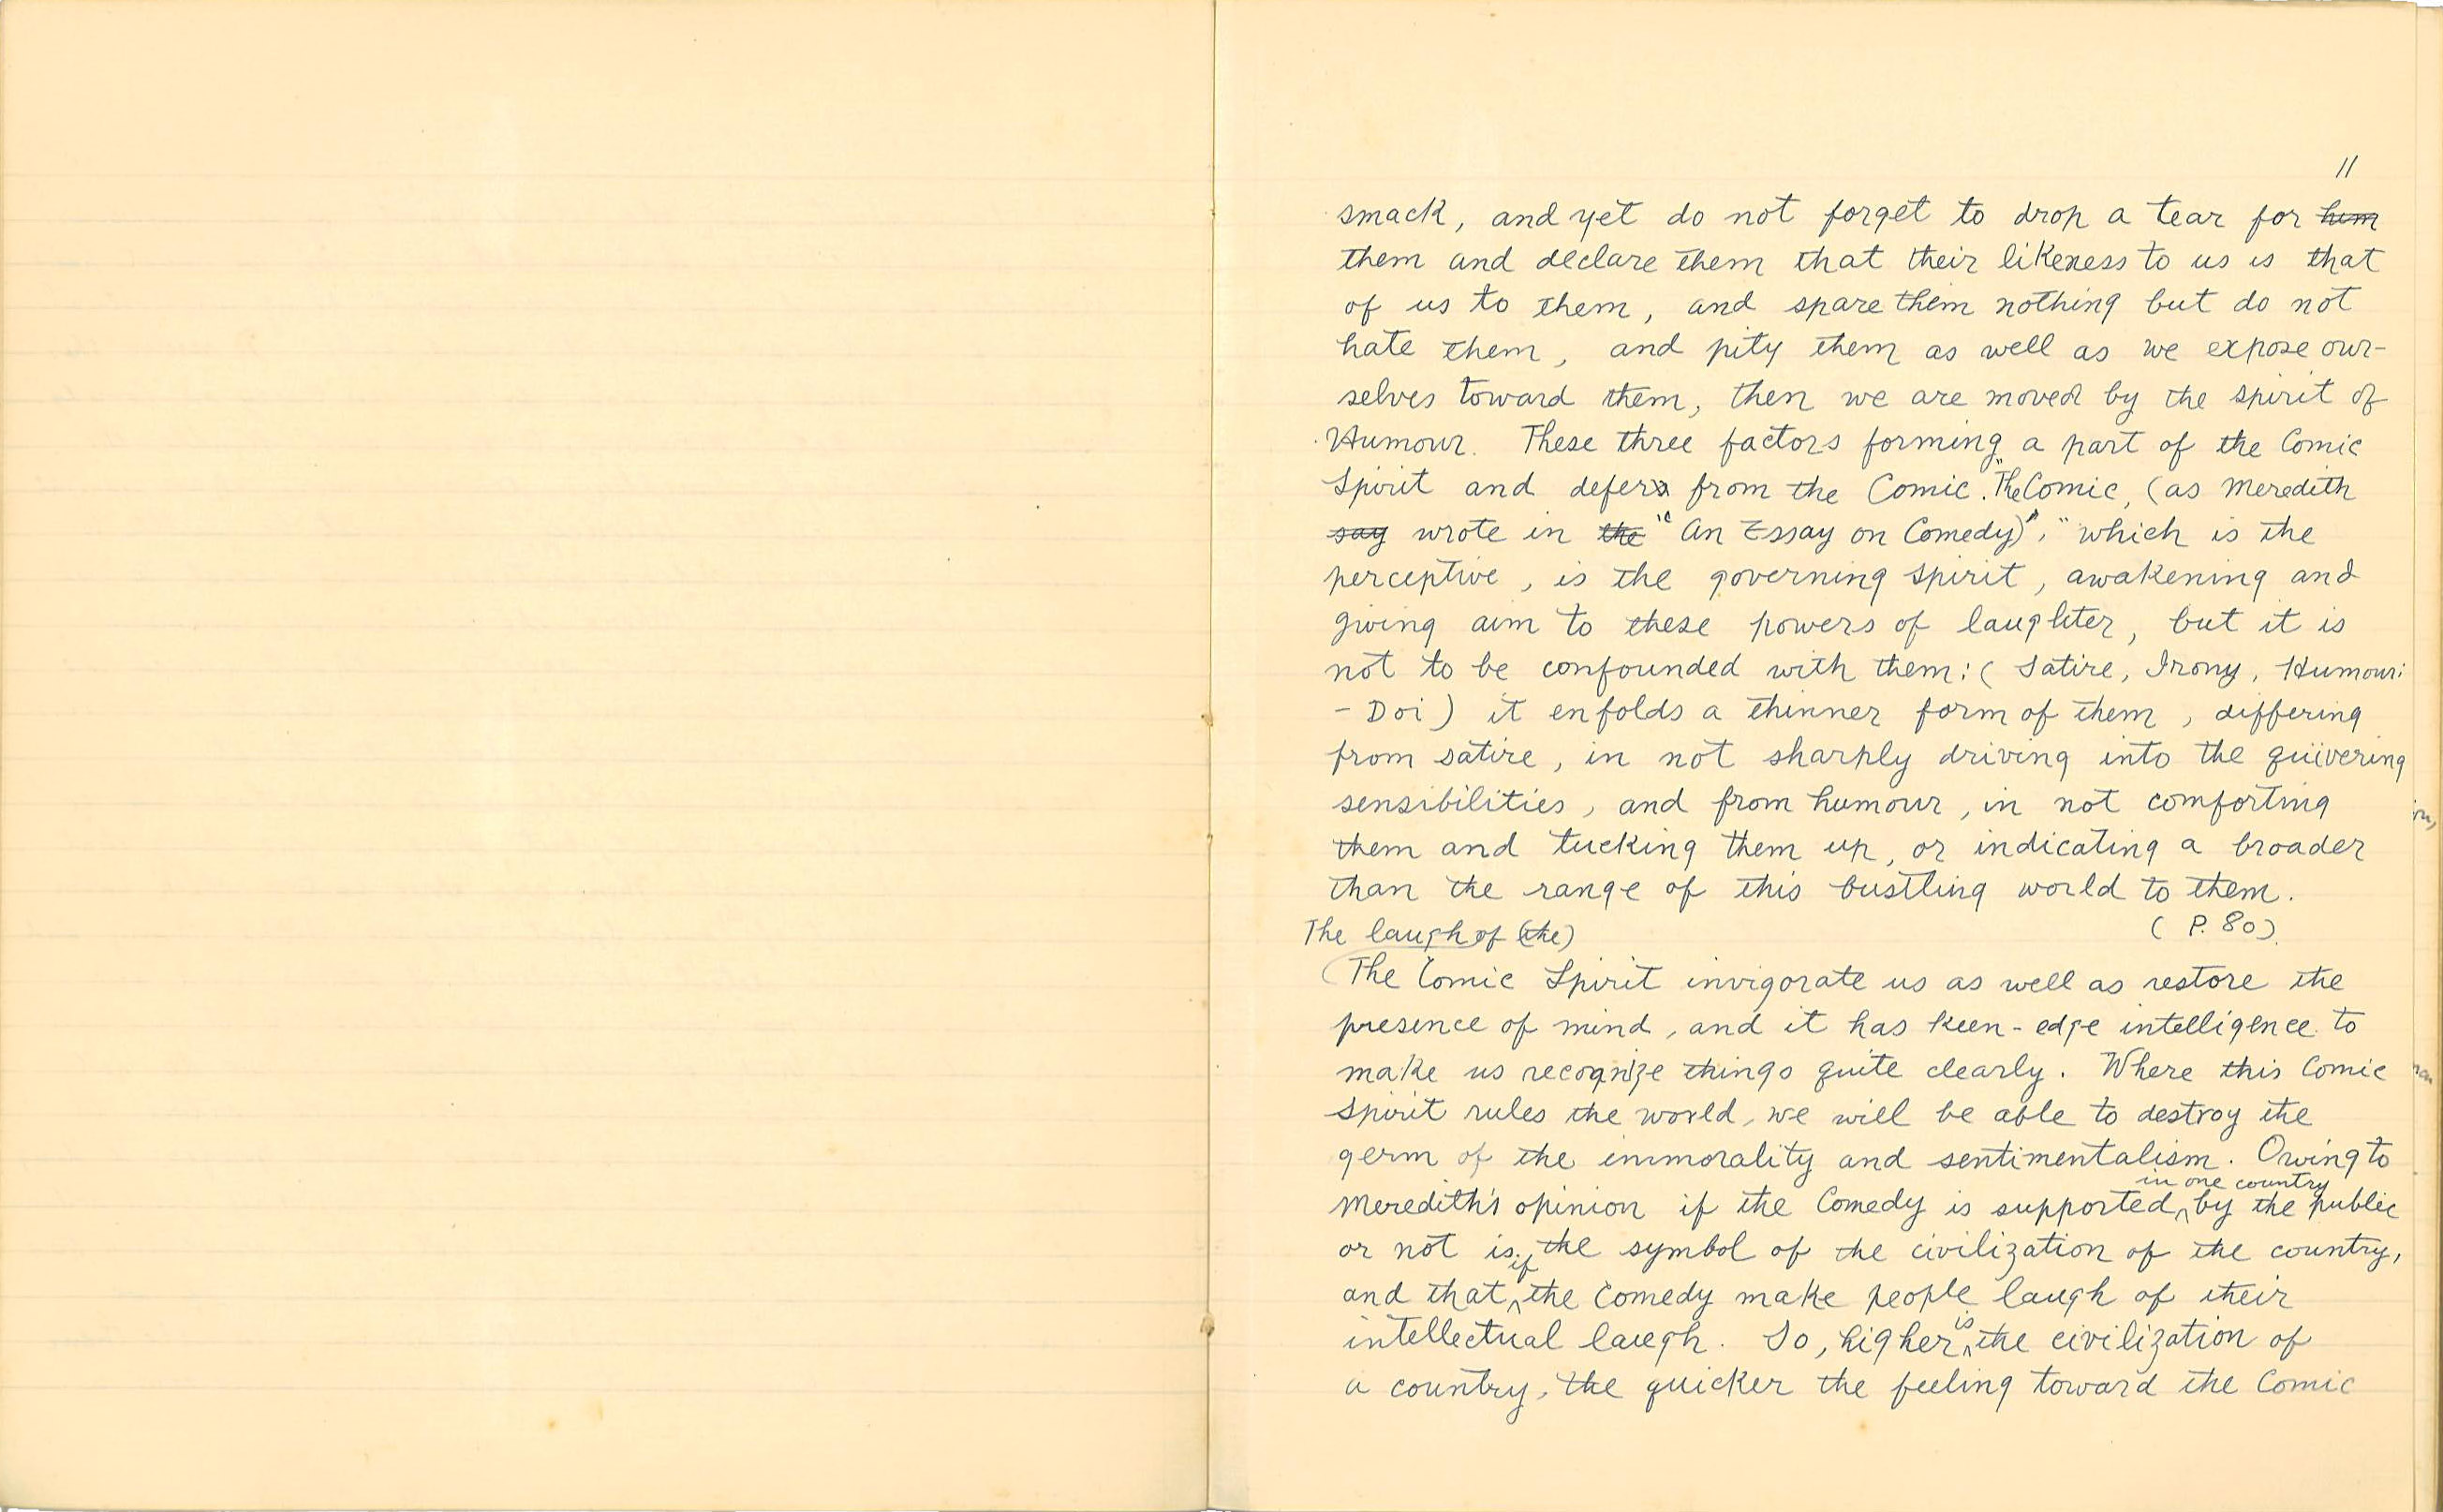 11
smack, and yet do not forget to drop a tear for him
them and declare them that their likeness to us is that
of us to them, and spare them nothing but do not
hate them, and pity them as well as we expose our-
selves toward them, then we are moved by the spirit of
Humour. These three factors forming a part of the Comic
Spirit and defers from the Comic. "The Comic, (as Meredith
say wrote in the "An Essay on Comedy)", "which is the
perceptive, is the governing spirit, awakening and
giving aim to these powers of laughter, but it is
not to be confounded with them: (Satire, Irony, Humour:
- Doi) it enfolds a thinner form of them, differing
from satire, in not sharply driving into the quivering
sensibilities, and from humour, in not comforting
them and tucking them up, or indicating a broader
than the range of this bustling world to them.
(P. 80)
The laugh of (the)
(The Comic Spirit invigorate us as well as restore the
presence of mind, and it has keen-edge intelligence to
make us recognize things quite clearly. Where this Comic
Spirit rules the world, we will be able to destroy the
germ of the immorality and sentimentalism. Owing to
in one country
Meredith's opinion if the Comedy is supported by the public
or not is the symbol of the civilization of the country,
if
and that the Comedy make people laugh of their
is
intellectual laugh. So, higher the civilization of
a country, the quicker the feeling toward the Comic